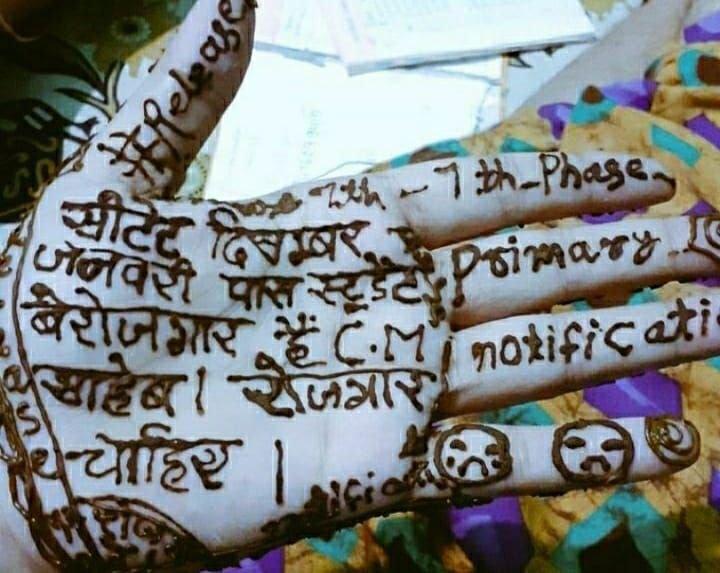 #Release
7th - 7th-Phase
Primary
notificati
सीटेट दिसम्बर
जनवरी पास स्टूडेंट
बेरोजगार हैं C.M
साहेब। रोजगार
चाहिए।